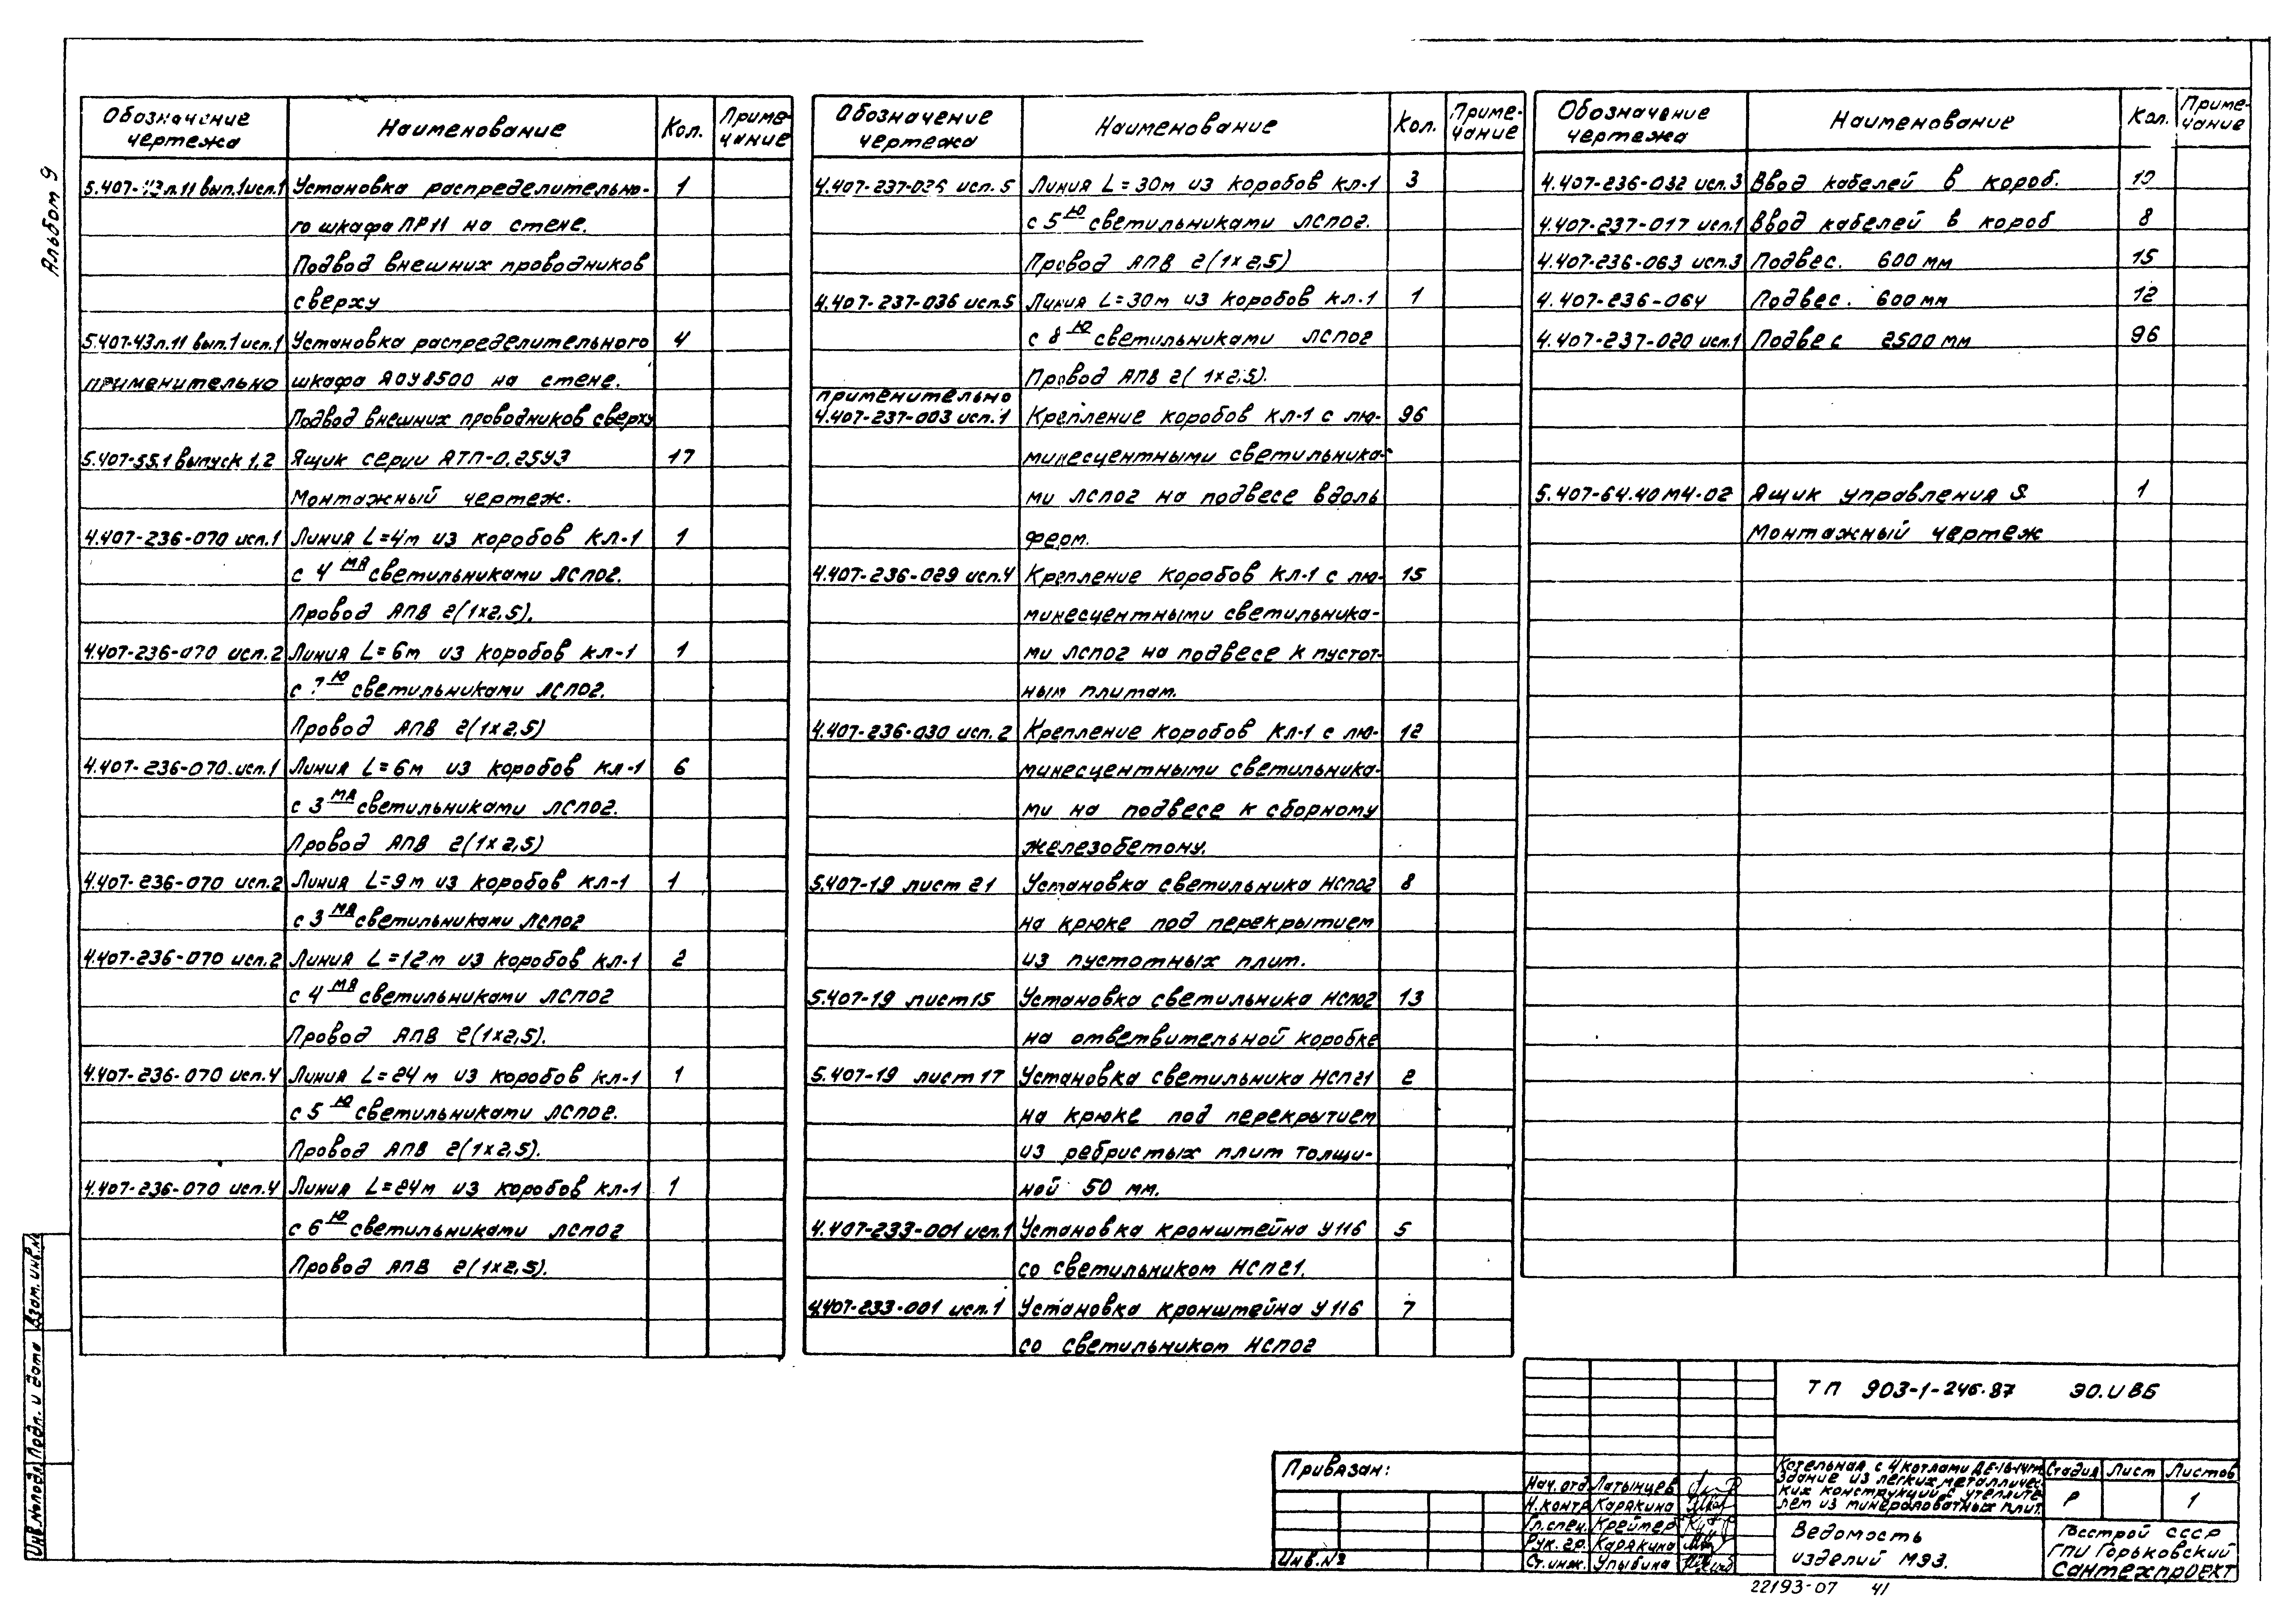 Альбом 9
Обозначение чертежа Наименование Кол. Приме-чание
5.407-43л.11 вып.1исп.1 Установка распределительно- 1
го шкафа ПР11 на стене.
Подвод внешних проводников
сверху
5.407-43л.11 вып.1исп.1 Установка распределительного 4
применительно шкафа ЯОУ8500 на стене.
Подвод внешних проводников сверху
5.407-55.1 выпуск 1,2 Ящик серии ЯТП-0,25У3 17
Монтажный чертеж.
4.407-236-070 исп.1 Линия L=4м из коробов КЛ-1 1
с 4 мя светильниками ЛСП02.
Провод АПВ 2(1x2,5).
4.407-236-070 исп.2 Линия L=6м из коробов КЛ-1 1
с ю светильниками ЛСП02.
Провод АПВ 2(1x2,5)
4.407-236-070.исп.1 Линия L=6м из коробов КЛ-1 6
с 3 мя светильниками ЛСП02.
Провод АПВ 2(1x2,5)
4.407-236-070 исп.2 Линия L=9м из коробов КЛ-1 1
с 3 мя светильниками ЛСП02
4.407-236-070 исп.2 Линия L=12м из коробов КЛ-1 2
с 4 мя светильниками ЛСП02
Провод АПВ 2(1x2,5).
4.407-236-070 исп.4 Линия L=24м из коробов КЛ-1 1
с 5 ю светильниками ЛСП02.
Провод АПВ 2(1x2,5).
4.407-236-070 исп.4 Линия L=24м из коробов КЛ-1 1
с 6 ю светильниками ЛСП02
Провод АПВ 2(1x2,5).
Обозначение чертежа Наименование Кол. Приме-чание
исп.5 Линия L=30м из коробов КЛ-1 3
с 5 ю светильниками ЛСП02.
Провод АПВ 2(1x2,5)
4.407-237-036 исп.5 Линия L=30м из коробов КЛ-1 1
с 8 ю светильниками ЛСП02
Провод АПВ 2(1x2,5).
применительно
4.407-237-003 исп.1 Крепление коробов КЛ-1 с лю- 96
минесцентными светильника-
ми ЛСП02 на подвесе вдоль
ферм.
4.407-236-029 исп.4 Крепление коробов КЛ-1 с лю- 15
минесцентными светильника-
ми ЛСП02 на подвесе к пустот-
ным плитам.
4.407-236-030 исп.2 Крепление коробов КЛ-1 с лю- 12
минесцентными светильника-
ми на подвесе к сборному
железобетону.
5.407-19 лист 21 Установка светильника НСП02 8
на крюке под перекрытием
из пустотных плит.
5.407-19 лист 15 Установка светильника НСП02 13
на ответвительной коробке
5.407-19 лист 17 Установка светильника НСП21 2
на крюке под перекрытием
из ребристых плит толщи-
ной 50 мм.
4.407-233-001 исп.1 Установка кронштейна У116 5
со светильником НСП21.
4.407-233-001 исп.1 Установка кронштейна У116 7
со светильником НСП02
Обозначение чертежа Наименование Кол. Приме-чание
4.407-236-032 исп.3 Ввод кабелей в короб. 10
4.407-237-017 исп.1 Ввод кабелей в короб 8
4.407-236-063 исп.3 Подвес. 600 мм 15
4.407-236-064 Подвес. 600 мм 12
4.407-237-020 исп.1 Подвес 2500 мм 96
5.407-64.40М4-02 Ящик управления Я. 1
Монтажный чертеж
ТП 903-1-246.87 ЭО.И ВБ
Привязан:
Инв.№
Нач.отд. Латынцев
Н.контр. Карякина
Гл.спец. Креймер
Рук.гр. Карякина
Ст.инж. Улыбина
Котельная с 4 котлами ДЕ-16-14ГМ
Здание из легких металличес-
ких конструкций с утеплите-
лем из минераловатных плит.
Стадия Лист Листов
Р 1
Ведомость
изделий МЭЗ.
Госстрой СССР
ГПИ Горьковский
Сантехпроект
22193-07 41
Взам. инв.№
Подп. и дата
Инв.№ подл.